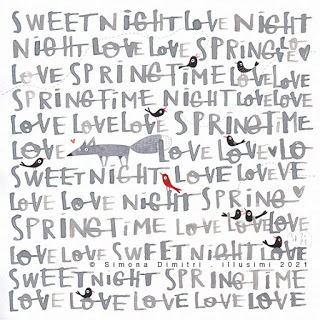 SWEET NIGHT LOVE NIGHT
NIGHT LOVE LOVE SPRING LO
LOVE SPRINGTIME LOVE LOVE
SPRINGTIME NIGHT LOVE LOVE
LOVE LOVE LOVE SPRINGTIME
LOVE LOVE LOVE LO
SWEET NIGHT LOVE LOVE LOVE
LOVE LOVE NIGHT SPRING
SPRINGTIME LOVE LOVE LOVE
LOVE LOVE SWEET NIGHT LOVE
© Simona Dimitri . illusimi 2021
SWEET NIGHT SPRINGTIME
LOVE LOVE LOVE LOVE LOVE LOVE